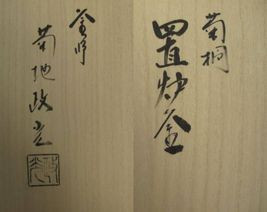 菊桐
置炉釜
釜師
菊地政光